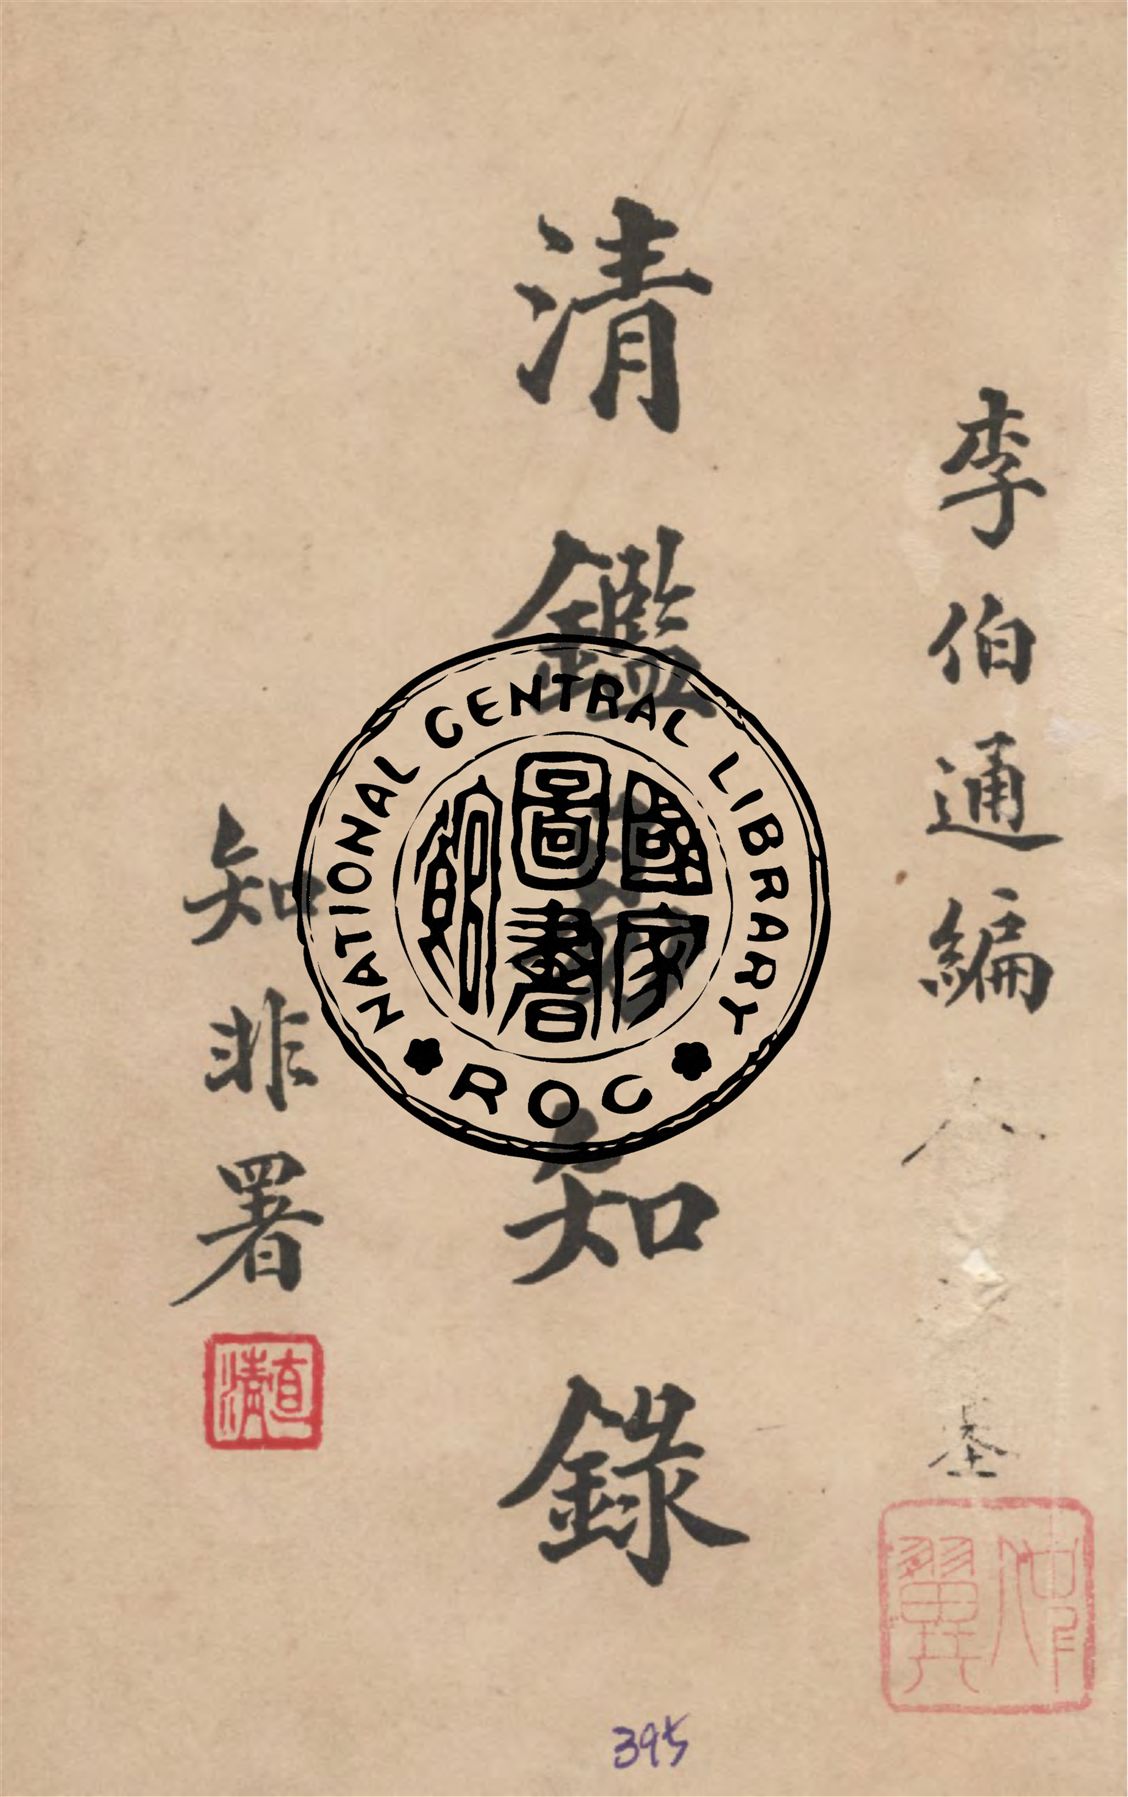 李伯通編
清鑑易知錄
知非署
直清
NATIONAL CENTRAL LIBRARY
國家圖書館
ROC
395